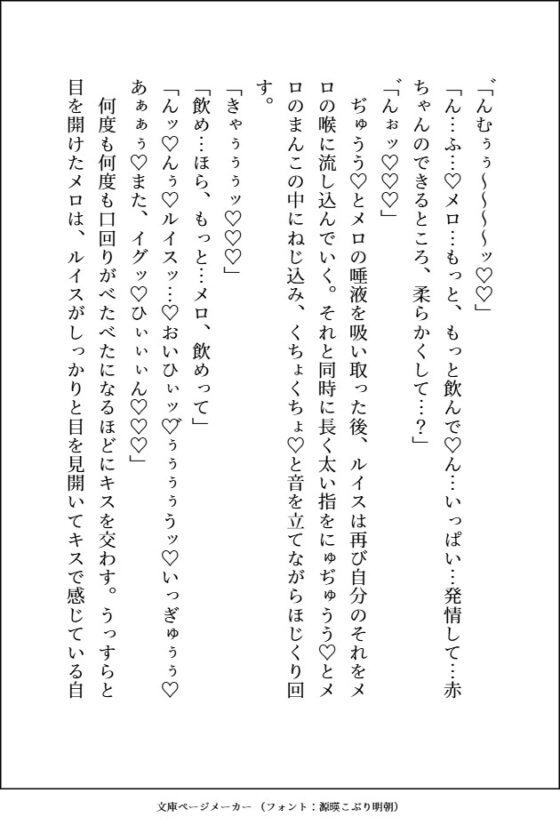 ゛んむぅぅ〜〜〜〜ッ♡♡」
「ん…ふ…♡メロ…もっと、もっと飲んで♡ん…いっぱい…発情して…赤
ちゃんのできるところ、柔らかくして…？」
゛んぉッ♡♡♡」
　ぢゅうう♡とメロの唾液を吸い取った後、ルイスは再び自分のそれをメ
ロの喉に流し込んでいく。それと同時に長く太い指をにゅぢゅうう♡とメ
ロのまんこの中にねじ込み、くちょくちょ♡と音を立てながらほじくり回
す。
「きゃぅぅぅッ♡♡♡」
「飲め…ほら、もっと…メロ、飲めって」
「んッ♡んぅ♡ルイスッ…♡おいひぃッ♡゛ぅぅぅぅうッ♡いっぎゅぅぅ♡
あぁぁぅ♡また、イグッ♡ひぃぃぃん♡♡♡」
　何度も何度も口回りがべたべたになるほどにキスを交わす。うっすらと
目を開けたメロは、ルイスがしっかりと目を見開いてキスで感じている自
文庫ページメーカー（フォント：源暎こぶり明朝）